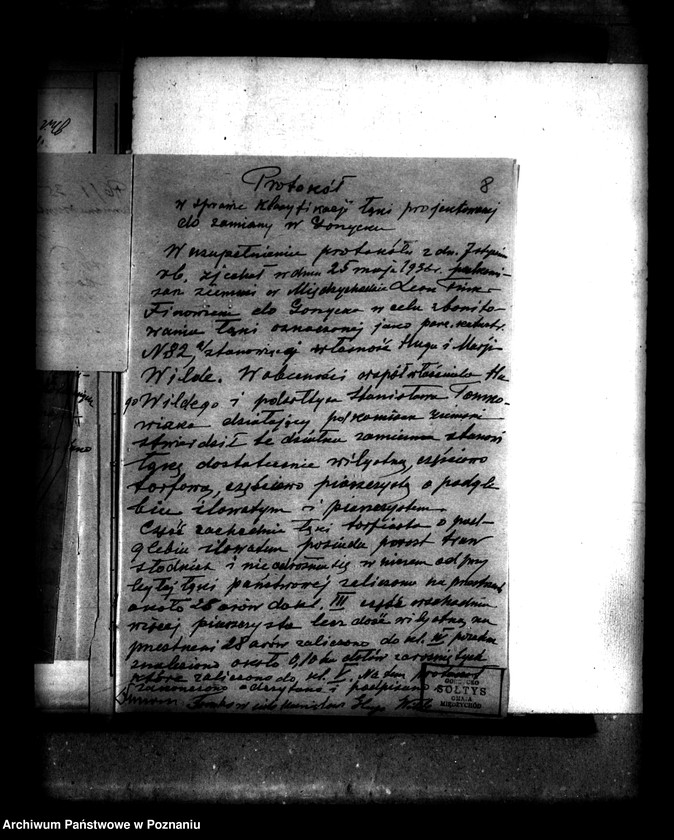 8
Protokół
w sprawie klasyfikacji łąki projektowanej
do zamiany w Gorzycku
W uzupełnieniu protokółu z dn. 7 stycznia
rb. zjechał w dniu 25 maja 1936 r. podkomi-
sarz ziemski w Międzychodzie Leon
do Gorzycka w celu zbonito-
wania łąki oznaczonej jako parc. katastr.
N 82, stanowiącej własność Hugo i Marji
Wilde. W obecności współwłaściciela Hu
go Wildego i Stanisława Tomko-
wiaka działający podkomisarz ziemski
stwierdził że działka zamienna stanowi
łąkę dostatecznie wilgotną, częściowo
torfową, częściowo piaszczystą o podgle-
biu iłowatym i piaszczystem.
Część zachodnia łąki torfiasta o pod-
glebiu iłowatem posiada porost traw
słodkich i nie odróżnia się w niczem od przy
ległej łąki państwowej zaliczono na przestrzeni
około 28 arów do kl. III część wschodnia
więcej piaszczysta lecz dość wilgotna na
przestrzeni 28 arów zaliczono do kl. IV ponadto
znaleziono około 0,10 ha dołów zarośniętych
które zaliczono do kl. V. Na tem protokół
zakończono odczytano i podpisano
Hugo Wilde
SOŁTYS
GMINA
MIĘDZYCHÓD
Archiwum Państwowe w Poznaniu